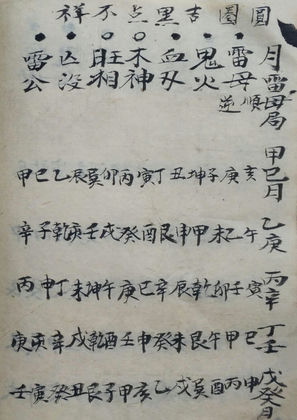 圓圈吉黑点不祥
月雷母局
雷母
逆順
鬼火
血刄
木神
旺相
凶没
雷公
甲己月
亥庚子坤丑丁寅丙卯癸辰乙巳甲
乙庚
午乙未甲申艮酉癸戌壬亥乾子辛
丙辛
寅壬卯乾辰辛巳庚午坤未丁申丙
丁壬
巳甲午艮未癸申壬酉乾戌辛亥庚
戊癸月
申丙酉癸戌乙亥甲子艮丑癸寅壬